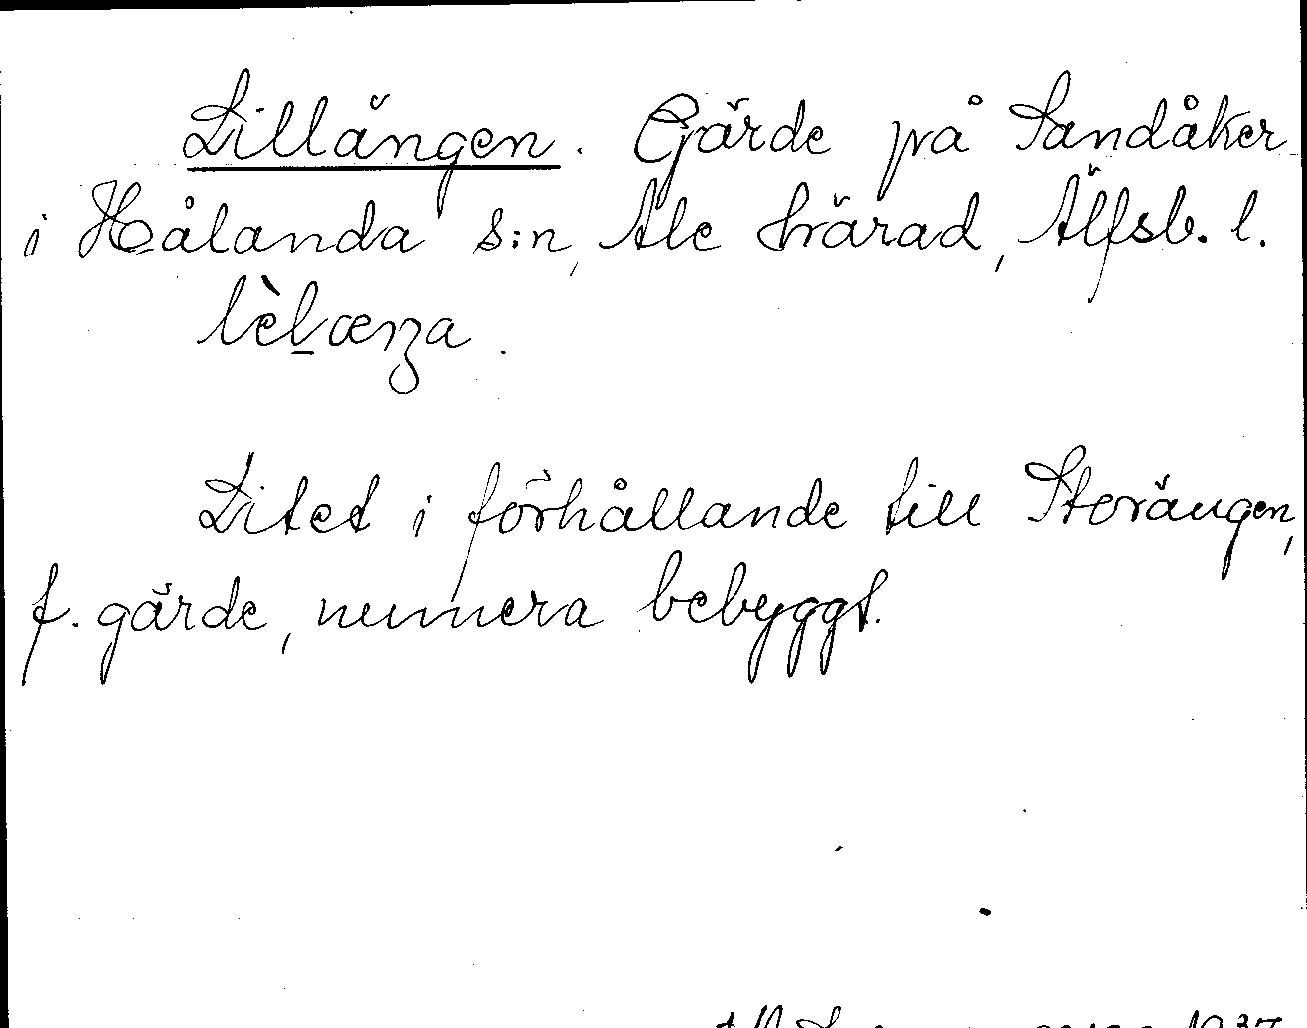 Lillängen. Gärde på Sandåker
i Hålanda s:n, Ale härad, Älfsb. l.
lèlæŋa.
Litet i förhållande till Storängen,
f. gärde, numera bebyggt.
1937